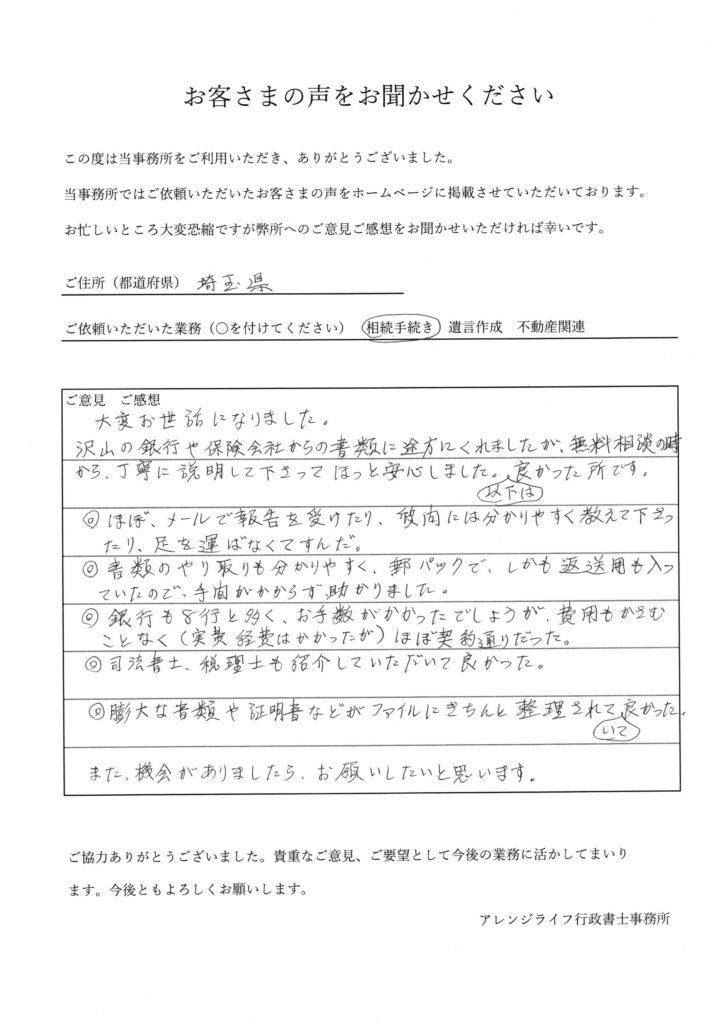 お客さまの声をお聞かせください
この度は当事務所をご利用いただき、ありがとうございました。
当事務所ではご依頼いただいたお客さまの声をホームページに掲載させていただいております。
お忙しいところ大変恐縮ですが弊所へのご意見ご感想をお聞かせいただければ幸いです。
ご住所（都道府県） 埼玉県
ご依頼いただいた業務（○を付けてください） 相続手続き 遺言作成 不動産関連
ご意見 ご感想
大変お世話になりました。
沢山の銀行や保険会社からの書類に途方にくれましたが、無料相談の時
から、丁寧に説明して下さってほっと安心しました。良かった所です。
以下は
◎ ほぼ、メールで報告を受けたり、質問には分かりやすく教えて下さっ
たり、足を運ばなくてすんだ。
◎ 書類のやり取りも分かりやすく、郵パックで、しかも返送用も入っ
ていたので、手間がかからず、助かりました。
◎ 銀行も8行と多く、お手数がかかったでしょうが、費用もかさむ
ことなく（実費経費はかかったが）ほぼ契約通りだった。
◎ 司法書士、税理士も紹介していただいて良かった。
◎ 膨大な書類や証明書などがファイルにきちんと整理されて良かった。
いて
また、機会がありましたら、お願いしたいと思います。
ご協力ありがとうございました。貴重なご意見、ご要望として今後の業務に活かしてまいり
ます。今後ともよろしくお願いします。
アレンジライフ行政書士事務所